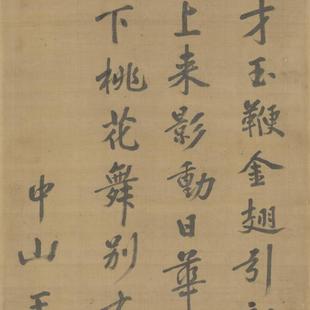 才玉鞭金翅引
上来影動日華
下桃花舞别
中山王